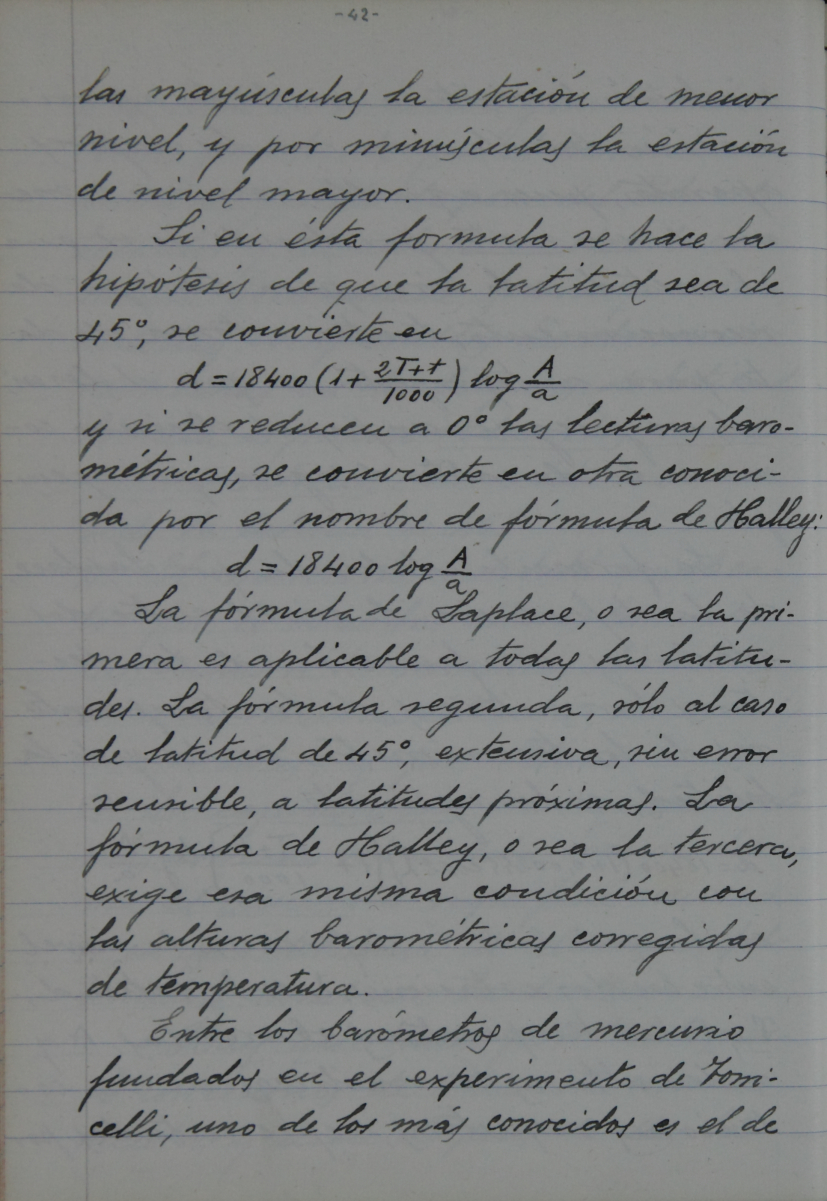 -42-
las mayúsculas la estación de menor
nivel, y por minúsculas la estación
de nivel mayor.
Si en ésta formula se hace la
hipótesis de que la latitud sea de
45°, se convierte en
d = 18400 (1 + \frac{2T+t}{1000}) log \frac{A}{a}
y si se reducen a 0° las lecturas baro-
métricas, se convierte en otra conoci-
da por el nombre de fórmula de Halley:
d = 18400 log \frac{A}{a}
La fórmula de Laplace, o sea la pri-
mera es aplicable a todas las latitu-
des. La fórmula segunda, sólo al caso
de latitud de 45°, extensiva, sin error
sensible, a latitudes próximas. La
fórmula de Halley, o sea la tercera,
exige esa misma condición con
las alturas barométricas corregidas
de temperatura.
Entre los barómetros de mercurio
fundados en el experimento de Torri-
celli, uno de los más conocidos es el de